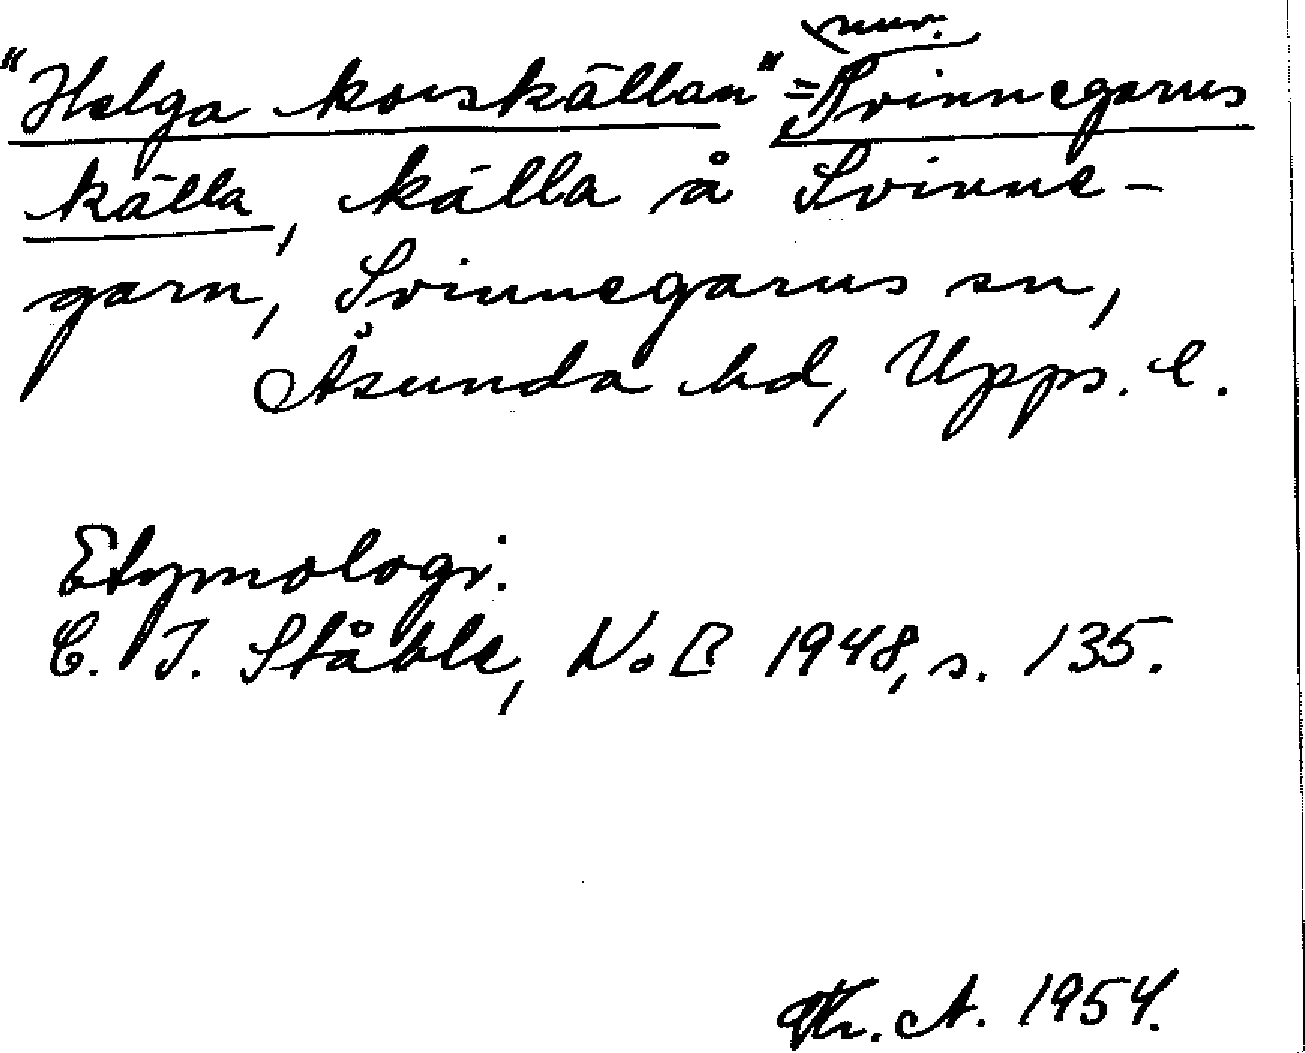 nuv.
"Helga korskällan" = Svinnegarns
källa, källa å Svinne-
garn, Svinnegarns sn,
Åsunda hd, Upps. l.
Etymologi.
C. I. Ståhle, NoB 1948, s. 135.
Th. A. 1954.